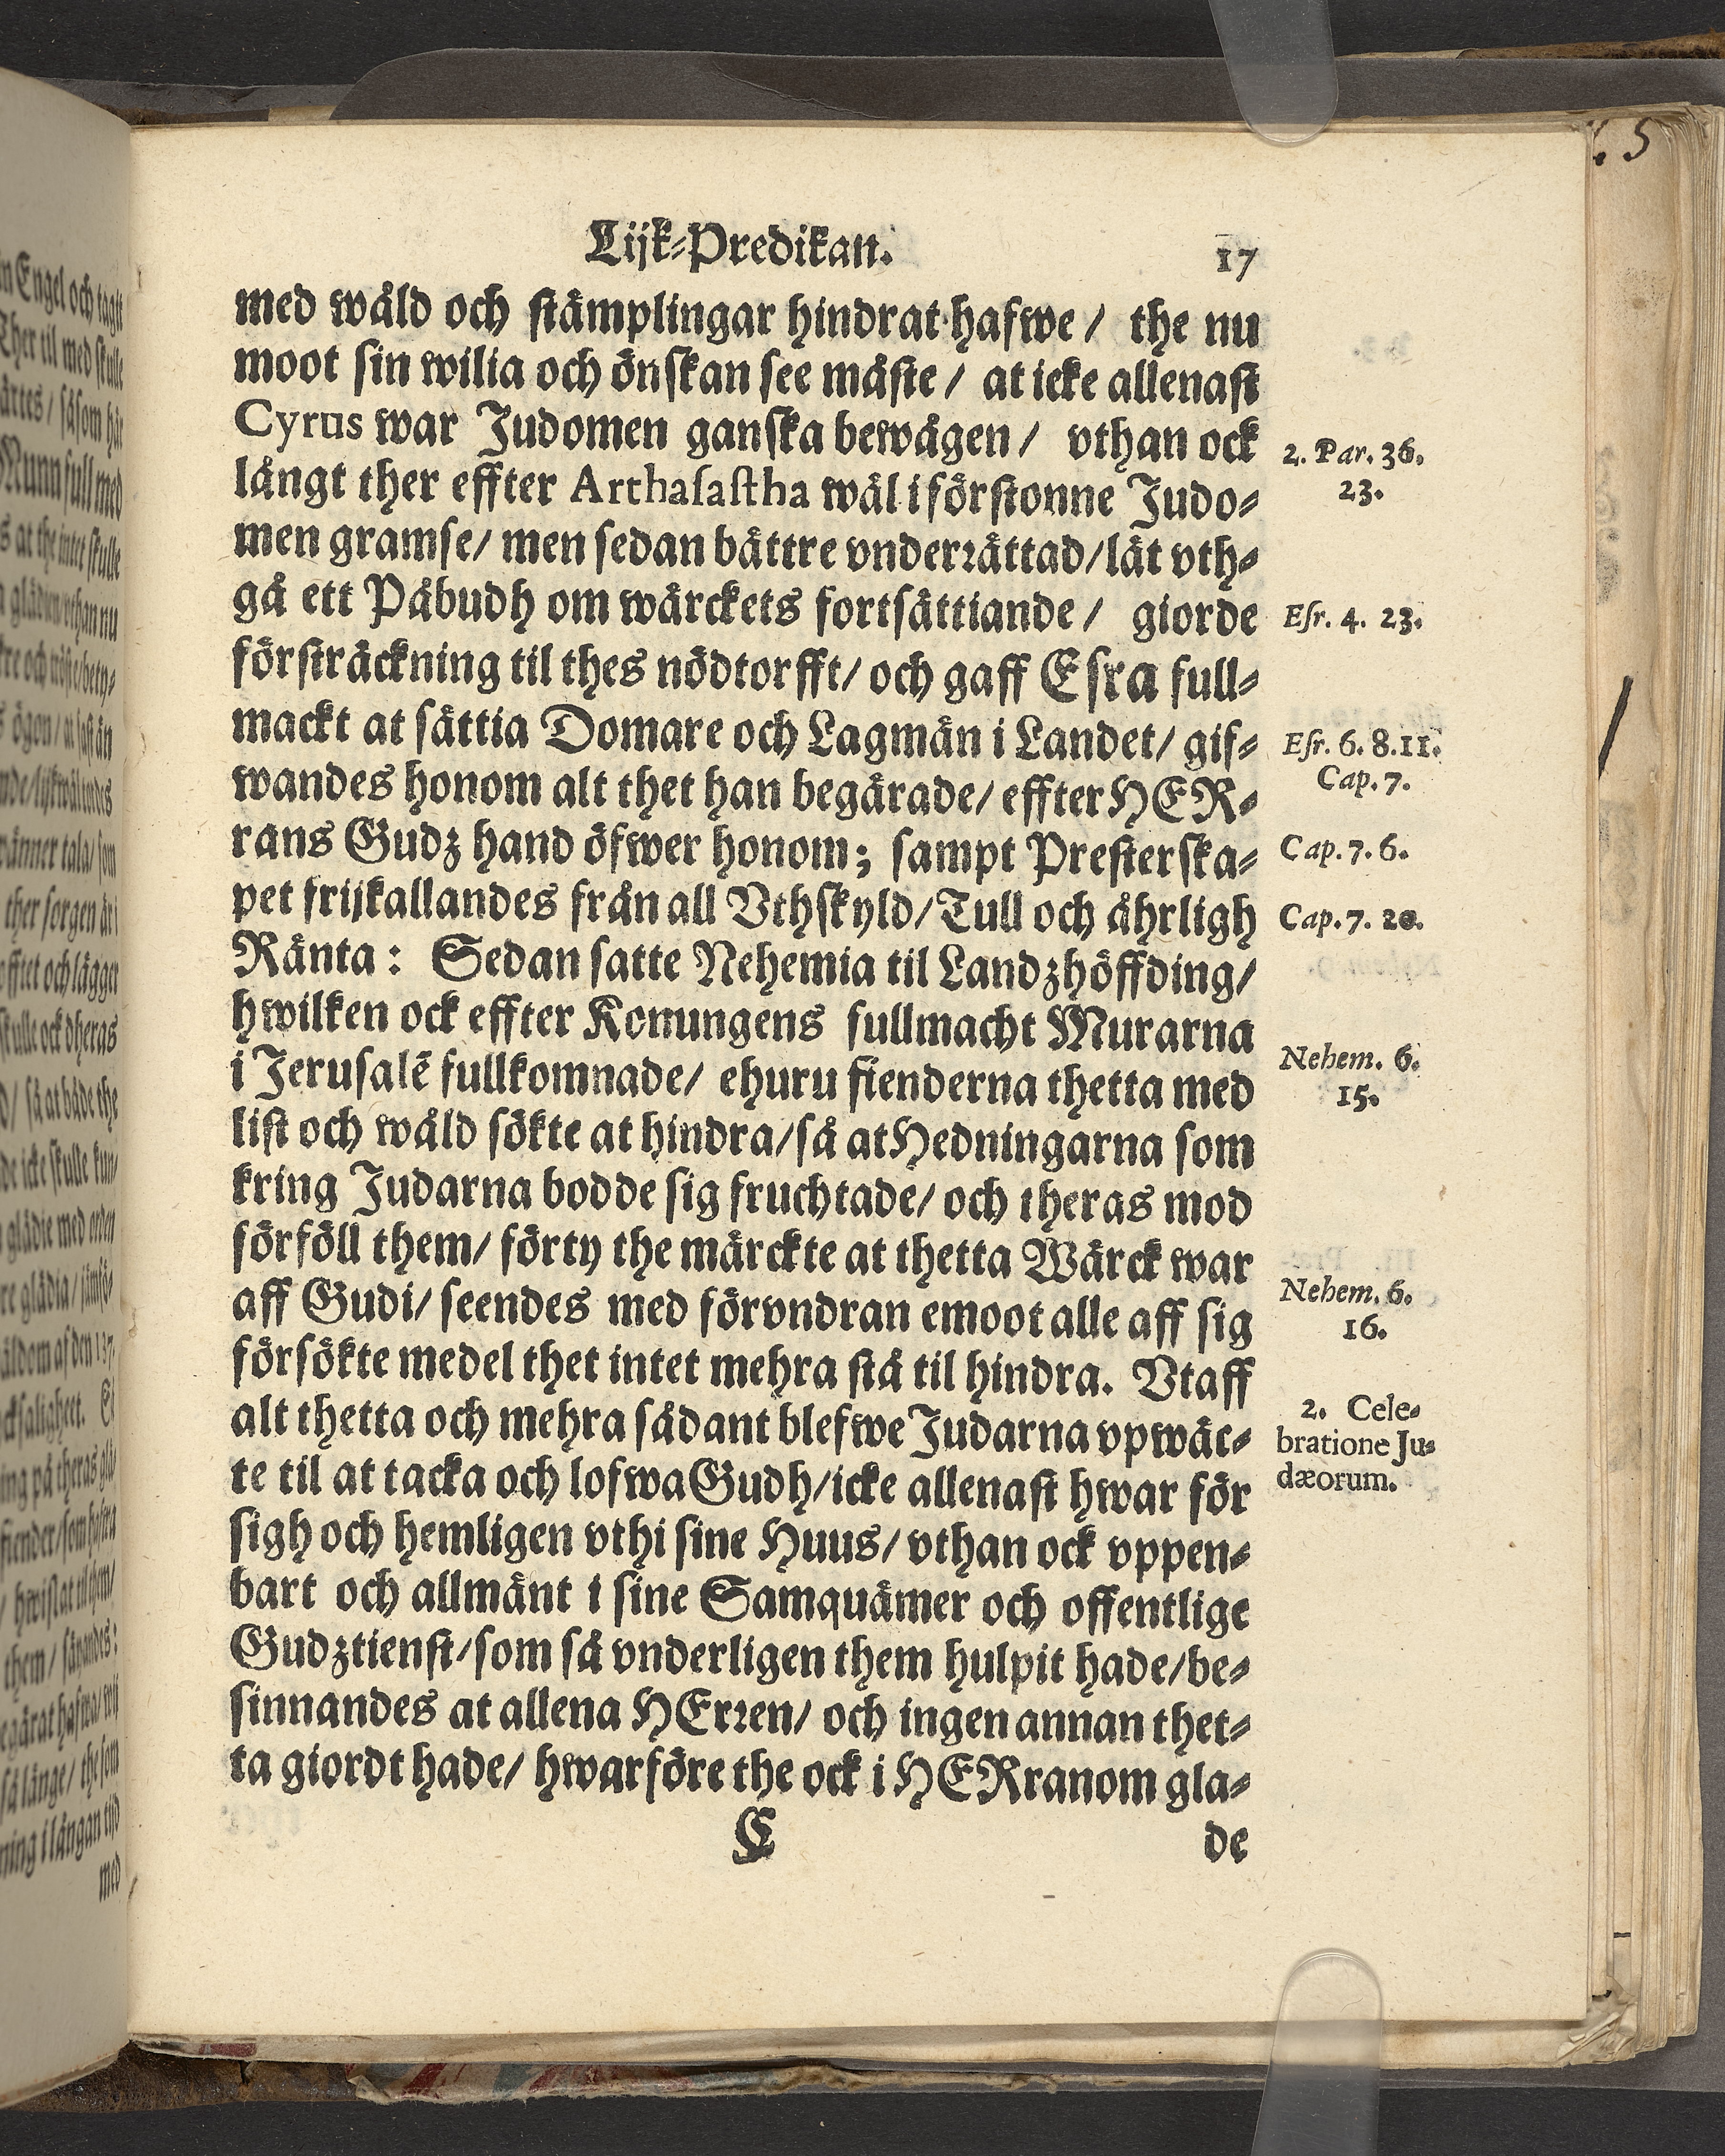 Lijk-Predikan. 17
med wåld och stämplingar hindrat hafwe / the nu
moot sin wilia och önskan see måste / at icke allenast
Cyrus war Judomen ganska bewågen / vthan ock
långt ther effter Arthasastha wäl i förstonne Judo-
men gramse / men sedan bättre vnderrättad / lät vth-
gå ett Påbudh om wärckets fortsättiande / giorde
försträckning til thes nödtorfft / och gaff Esra full-
mackt at sättia Domare och Lagmän i Landet / gif-
wandes honom alt thet han begärade / effter HER-
rans Gudz hand öfwer honom; sampt Presterska-
pet frijkallandes från all Vthskyld / Tull och åhrligh
Ränta: Sedan satte Nehemia til Landzhöffding /
hwilken ock effter Konungens fullmacht Murarna
i Jerusalē fullkomnade / ehuru fienderna thetta med
list och wåld sökte at hindra / så at Hedningarna som
kring Judarna bodde sig fruchtade / och theras mod
förföll them / förty the märckte at thetta Wärck war
aff Gudi / seendes med förvndran emoot alle aff sig
försökte medel thet intet mehra stå til hindra. Vtaff
alt thetta och mehra sådant blefwe Judarna vpwäc-
te til at tacka och lofwa Gudh / icke allenast hwar för
sigh och hemligen vthi sine Huus / vthan ock vppen-
bart och allmänt i sine Samquämer och offentlige
Gudztienst / som så vnderligen them hulpit hade / be-
sinnandes at allena HErren / och ingen annan thet-
ta giordt hade / hwarföre the ock i HERranom gla-
C de
2. Par. 36.
23.
Esr. 4. 23.
Esr. 6. 8. 11.
Cap. 7.
Cap. 7. 6.
Cap. 7. 20.
Nehem. 6.
15.
Nehem. 6.
16.
2. Cele-
bratione Ju-
dæorum.